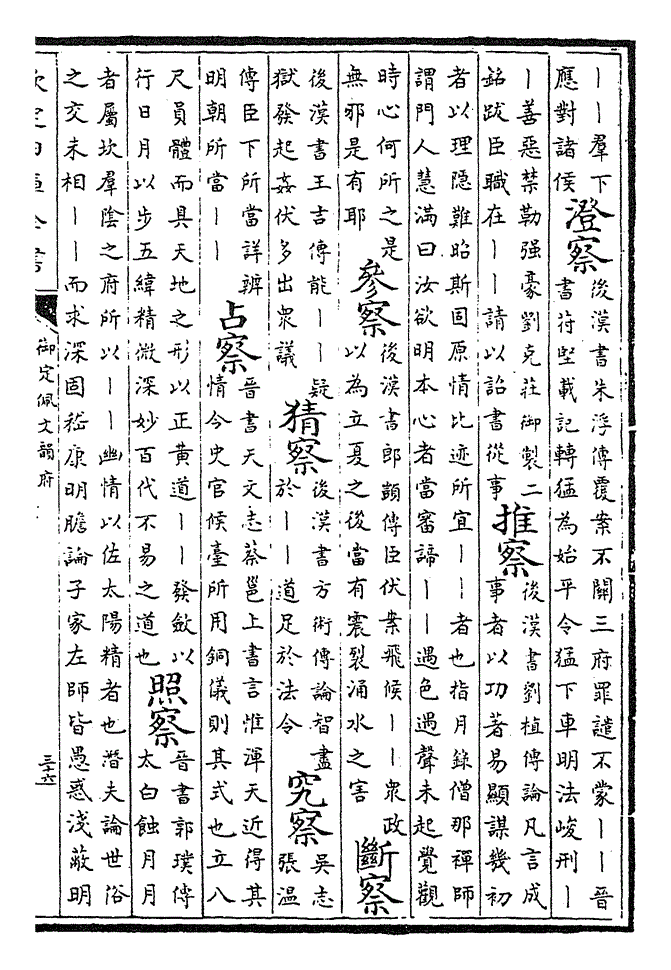 丨丨羣下
應對諸侯
澄察
後漢書朱浮傳覆案不關三府罪譴不蒙丨丨晉
書苻堅載記轉猛為始平令猛下車明法峻刑丨
丨善惡禁勒强豪劉克莊御製二
銘跋臣職在丨丨請以詔書從事
推察
後漢書劉植傳論凡言成
事者以功著易顯謀幾初
者以理隠難昭斯固原情比迹所宜丨丨者也指月錄僧那禪師
謂門人慧滿曰汝欲明本心者當審諦丨丨遇色遇聲未起覺觀
時心何所之是
無邪是有耶
參察
後漢書郎顗傳臣伏案飛候丨丨衆政
以為立夏之後當有震裂涌水之害
斷察
後漢書王吉傳能丨丨疑
獄發起姦伏多出衆議
猜察
後漢書方術傳論智盡
於丨丨道足於法令
究察
吳志
張温
傳臣下所當詳辨
明朝所當丨丨
占察
晉書天文志蔡邕上書言惟渾天近得其
情今史官候臺所用銅儀則其式也立八
尺員體而具天地之形以正黄道丨丨發斂以
行日月以步五緯精微深妙百代不易之道也
照察
晉書郭璞傳
太白蝕月月
者屬坎羣陰之府所以丨丨幽情以佐太陽精者也潛夫論世俗
之交未相丨丨而求深固嵇康明膽論子家左師皆愚惑淺蔽明
欽定四庫全書
御定佩文韻府
三十六